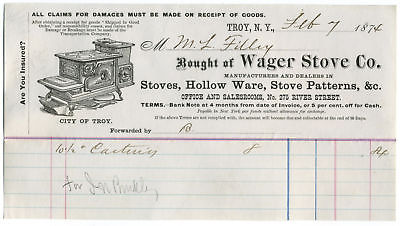 ALL CLAIMS FOR DAMAGES MUST BE MADE ON RECEIPT OF GOODS.
After obtaining a receipt for goods "Shipped In Good
Order," our responsibility ceases, and claims
for Damage or Breakage must be made of the
Transportation Company.
Are You Insured?
CITY OF TROY.
TROY, N.Y., Feb 7 1874
M M. L. Filley
Bought of WAGER STOVE CO.
MANUFACTURERS AND DEALERS IN
Stoves, Hollow Ware, Stove Patterns, &c.
OFFICE AND SALESROOMS, No. 275 RIVER STREET.
TERMS.-Bank Note at 4 months from date of Invoice, or 5 per cent. off for Cash.
Payable in New York per funds without allowance for exchange.
If the above Terms are not complied with, the amount will become due and collectable at the end of 30 Days.
Forwarded by B
10 ½ Castings 8 .84
For